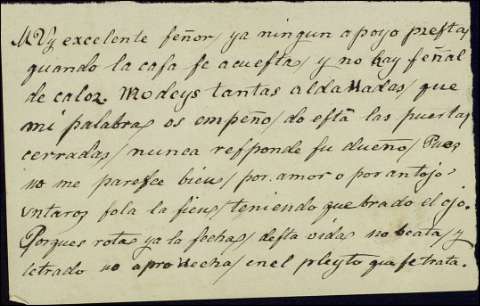 MVy excelente ſeñor, ya ningun apoyo preſta,
quando la caſa ſe acueſta, y no hay ſeñal
de calor. No deys tantas aldavadas, que
mi palabra os empeño, do eſtã las puertas
cerradas, nunca reſponde ſu dueño, Pues
no me pareſce bien, por amor o por antojo
vntaros ſola la ſien, teniendo quebrado el ojo.
Porque rota ya la ſechas, deſta vida no beata, y
letrado no aprovecha, en el pleyto que ſe trata.